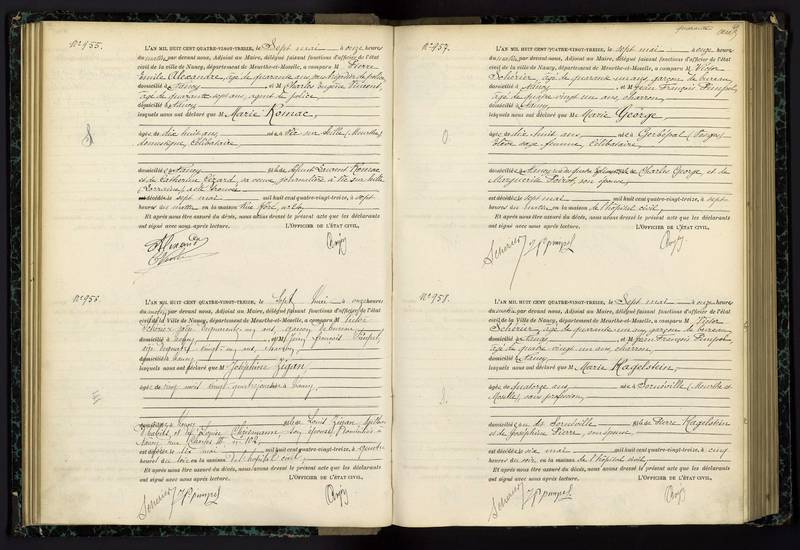 N° 955.
L'AN MIL HUIT CENT QUATRE-VINGT-TREIZE, le Sept mai à onze heures
du matin par devant nous, Adjoint au Maire, délégué faisant fonctions d'officier de l'état
civil de la ville de Nancy, département de Meurthe-et-Moselle, a comparu M Pierre
Emile Alexandre, âgé de quarante ans, de police,
domicilié à Nancy et M Charles Eugène
âgé de quarante sept ans, agent de police,
domicilié à Nancy
lesquels nous ont déclaré que M Marie Romac,
âgée de dix huit ans née à Vic sur Seille (Meurthe)
domestique, célibataire,
domiciliée à Nancy fille de défunt Laurent Romac
et de Catherine sa veuve, journalière à Vic sur Seille
(Lorraine)
est décédée le sept mai mil huit cent quatre-vingt-treize, à sept
heures du matin en la maison rue n° 24,
Et après nous être assuré du décès, nous avons dressé le présent acte que les déclarants
ont signé avec nous après lecture. L'OFFICIER DE L'ÉTAT CIVIL,
N° 956.
L'AN MIL HUIT CENT QUATRE-VINGT-TREIZE, le Sept Mai à onze heures
du matin, par devant nous, Adjoint au Maire, délégué faisant fonctions d'officier de l'état
civil de la Ville de Nancy, département de Meurthe-et-Moselle, a comparu M Victor
Schérier, âgé de quarante un ans, garçon de bureau
domicilié à Nancy, et M Jean François Pimpel,
âgé de quatre vingt un ans, charron,
domicilié à Nancy
lesquels nous ont déclaré que M Joséphine Zigan,
âgée de cinq mois vingt quatre jours née à Nancy,
domiciliée à Nancy fille de Louis Zigan,
et de Louise son épouse, domiciliés à
Nancy rue Charles III, n° 102
est décédée le six mai mil huit cent quatre-vingt-treize, à quatre
heures du soir en la maison de l'hôpital civil,
Et après nous être assuré du décès, nous avons dressé le présent acte que les déclarants
ont signé avec nous après lecture. L'OFFICIER DE L'ÉTAT CIVIL,
Scherier J F Pimpel
quarante
N° 957.
L'AN MIL HUIT CENT QUATRE-VINGT-TREIZE, le sept mai à onze heures
du matin par devant nous, Adjoint au Maire, délégué faisant fonctions d'officier de l'état
civil de la ville de Nancy, département de Meurthe-et-Moselle, a comparu M Victor
Schérier, âgé de quarante un ans, garçon de bureau,
domicilié à Nancy et M Jean François Pimpel,
âgé de quatre vingt un ans, charron,
domicilié à Nancy
lesquels nous ont déclaré que M Marie George,
âgée de dix huit ans née à Gerbépal (Vosges)
élève sage femme, célibataire,
domiciliée à Nancy fille de Charles George et de
Marguerite son épouse,
est décédée le sept mai mil huit cent quatre-vingt-treize, à sept
heures du matin en la maison de l'hôpital civil,
Et après nous être assuré du décès, nous avons dressé le présent acte que les déclarants
ont signé avec nous après lecture. L'OFFICIER DE L'ÉTAT CIVIL,
Scherier J F Pimpel
N° 958.
L'AN MIL HUIT CENT QUATRE-VINGT-TREIZE, le Sept mai à onze heures
du matin par devant nous, Adjoint au Maire, délégué faisant fonctions d'officier de l'état
civil de la Ville de Nancy, département de Meurthe-et-Moselle, a comparu M Victor
Schérier, âgé de quarante un ans, garçon de bureau,
domicilié à Nancy et M Jean François Pimpel,
âgé de quatre vingt un ans, charron,
domicilié à Nancy
lesquels nous ont déclaré que M Marie Hagelstein,
âgée de quatorze ans née à Soméville (Meurthe et
Moselle) sans profession,
domiciliée au dit Soméville fille de Pierre Hagelstein
et de Joséphine Pierre, son épouse,
est décédée le six mai mil huit cent quatre-vingt-treize, à cinq
heures du soir, en la maison de l'hôpital civil,
Et après nous être assuré du décès, nous avons dressé le présent acte que les déclarants
ont signé avec nous après lecture. L'OFFICIER DE L'ÉTAT CIVIL,
Scherier J F Pimpel